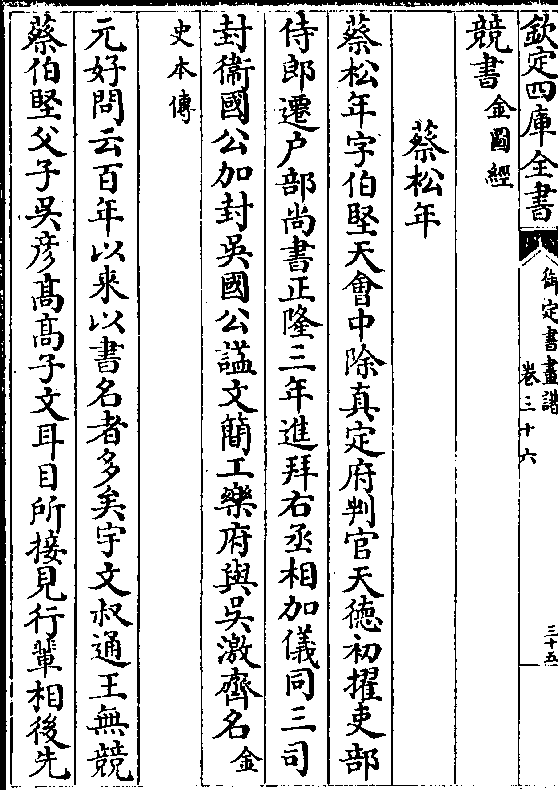 欽定四庫全書
御定書畫譜
卷三十六
三十五
競書金圖經
蔡松年
蔡松年字伯堅天會中除真定府判官天德初擢吏部
侍郎遷户部尚書正隆三年進拜右丞相加儀同三司
封衛國公加封吳國公諡文簡工樂府與吳激齊名金
史本傳
元好問云百年以來以書名者多矣宇文叔通王無競
蔡伯堅父子吳彦髙髙子文耳目所接見行輩相後先